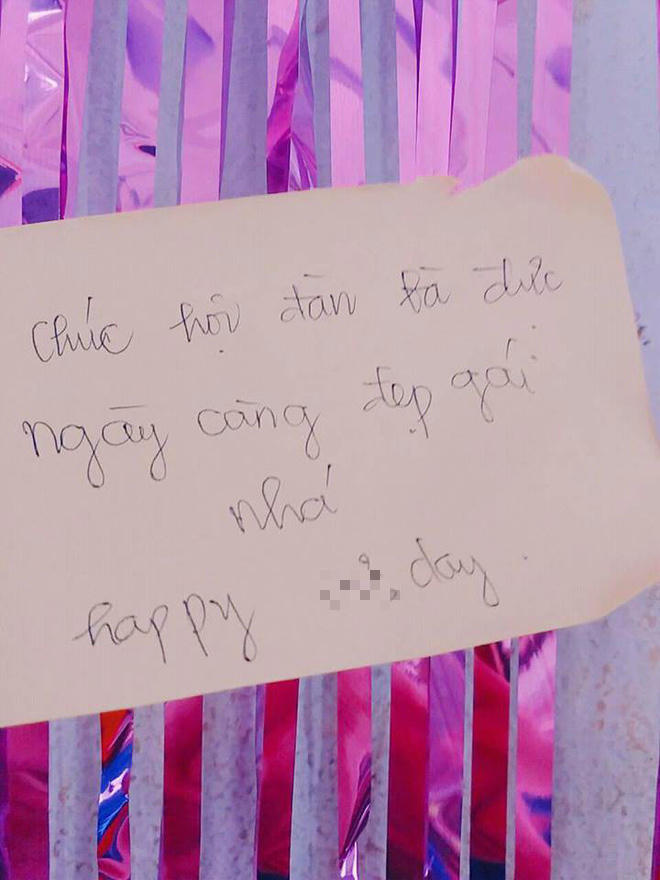 Chúc hội đàn bà đức
ngày càng đẹp gái
nhá
happy day.